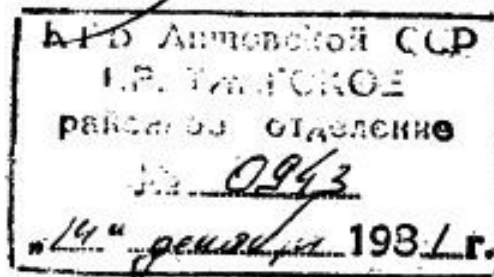 КГБ Литовской ССР
районное отделение
№ 0943
"14" декабря 1981 г.